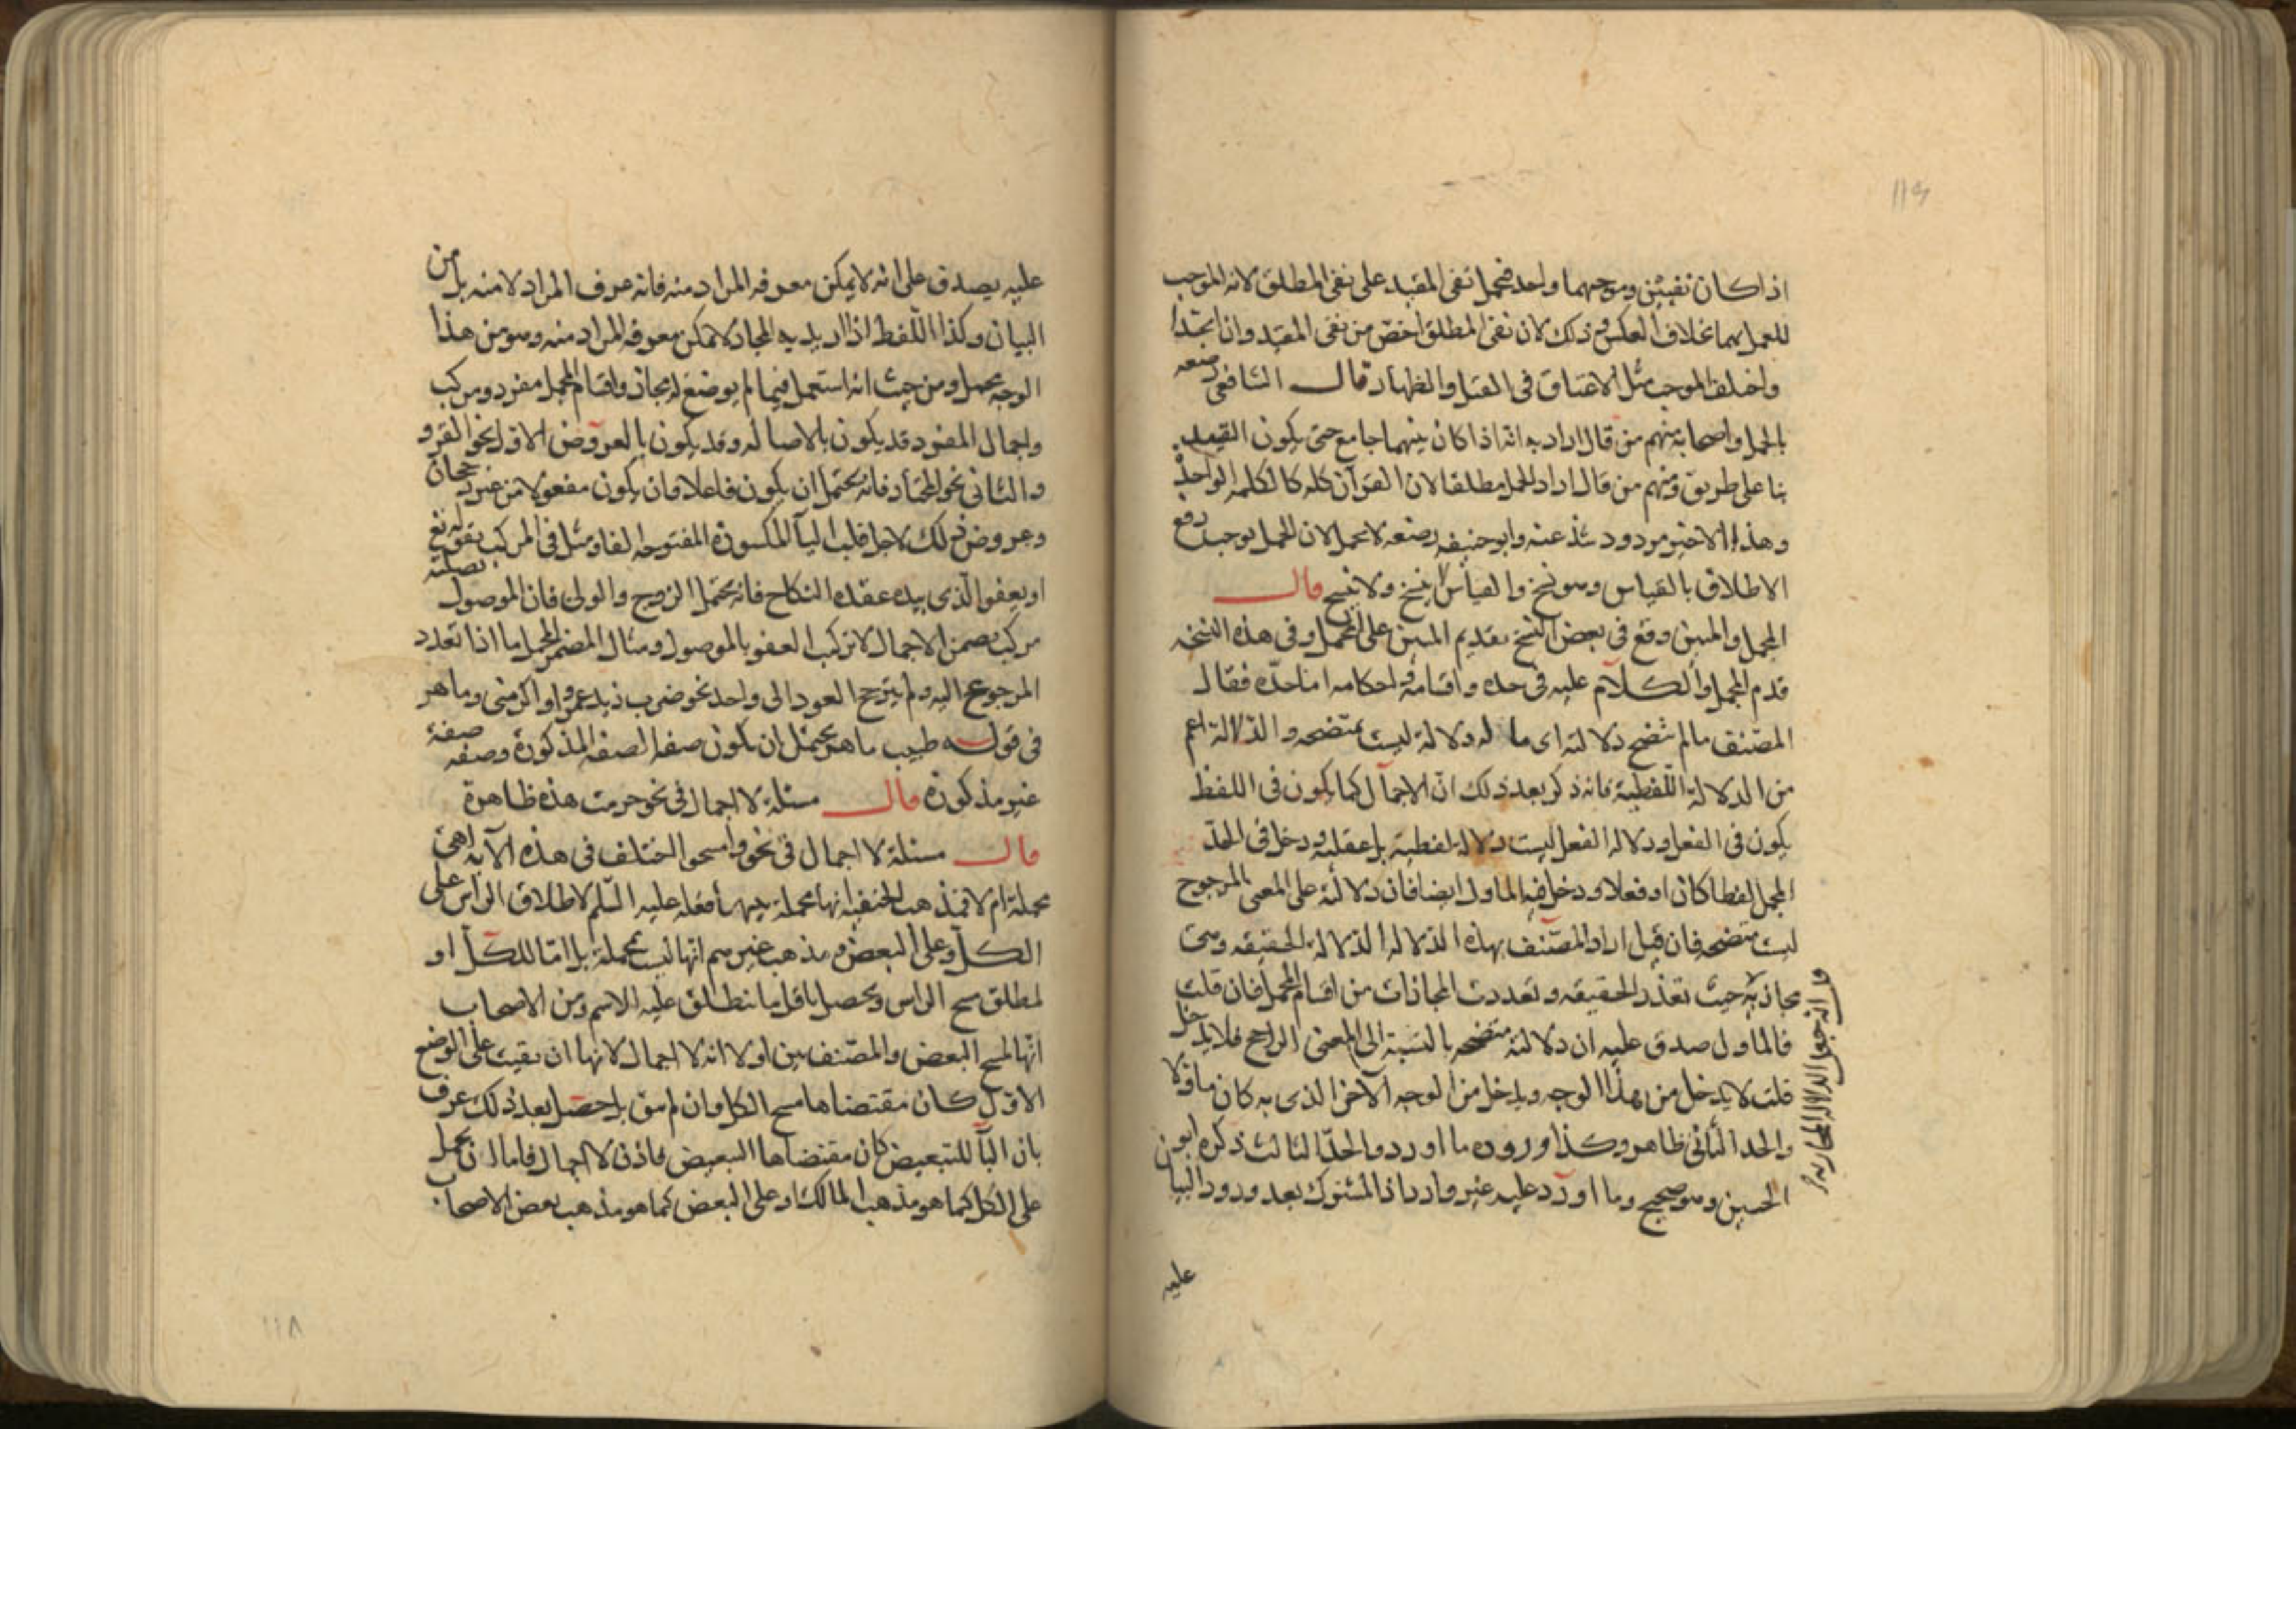 اذا كان نفيين وموجبهما واحد فيحمل نفى المقيد على نفى المطلق لانه الموجب
للعمل بهما بخلاف العكس وذلك لان نفى المطلق اخص من نفى المقيد وان
واختلف الموجب مثل الاعتاق فى القتل والظهار قال الشافعى رضعه
بالحمل واصحابه منهم من قال اراد به انه اذا كان بينهما جامع حتى يكون القيد
بنا على طريق ومنهم من قال اراد الحمل مطلقا لان القرآن كله كالكلمه الواحد
وهذا الاخير مردود شذ عنه وابو حنيفه رضعه لا يحمل لان الحمل يوجب رفع
الاطلاق بالقياس وهو نسخ والقياس لا ينسخ ولا ينسخ قال
المجمل والمبين وقع فى بعض النسخ بتقديم المبين على المجمل وفى هذه النسخه
قدم المجمل والكلام عليه فى حده واقسامه واحكامه اما حدّه فقال
المصّنف ما لم تتضح دلالته اى ما له دلالة ليست بمتضحه والدلالة اعم
من الدلالة اللّفظية فانه ذكر بعد ذلك انّ الاجمال كما يكون فى اللفظ
يكون فى الفعل ودلاله الفعل ليست دلالة لفظية بل عقلية ودخل فى الحدّ
المجمل لفظا كان او فعلا ودخل فيه الماول ايضا فان دلالته على المعنى المرجوح
ليست متضحه فان قيل اراد المصّنف بهذه الدلاله الدلالة الحقيقه
مجازية حيث تعذر الحقيقه وتعددت المجازات من اقسام المجمل فان قلت
فالماول صدق عليه ان دلالته متضحه بالنسبة الى المعنى الراجح فلا يدخل
قلت لا يدخل من هذا الوجه ويدخل من الوجه الآخر الذى به كان ماولا
والحد الثانى ظاهر وكذا وروده ما اورد والحدّ الثالث ذكره ابو
الحسين وهو صحيح وما اورد عليه غير وارد اذ المشترك بعد ورود البيان
عليه
عليه يصدق على انه لا يمكن معرفه المراد منه فانه عرف المراد لا منه بل من
البيان وكذا اللّفظ اذا اريد به المجاز لا يمكن معرفه المراد منه وهو من هذا
الوجه مجمل ومن حيث انه استعمل فيما لم يوضع له مجاز واقسام المجمل مفرد ومركب
واجمال المفرد قد يكون بالاصاله وقد يكون بالعروض الاول نحو القرو
والثانى نحو المختار فانه يحتمل ان يكون فاعلا وان يكون مفعولا من غير رجحان
وعروض ذلك لاجل قلب اليآ المكسورة المفتوحه الفا ومثل فى المركب بقوله تع
او يعفو الّذى بيده عقده النكاح فانه يحتمل الزوج والولى فان الموصول بصلته
مركب يضمن الاجمال لا تركب العفو بالموصول ومثال المضمر المجمل ما اذا تعدد
المرجوع اليه ولم يترجح العود الى واحد نحو ضرب زيد عمرا واكرمنى وماهر
فى قوله طبيب ماهر يحتمل ان يكون صفه لصفه المذكورة وصفه
غير مذكورة قال مسئلة لا اجمال فى نحو حرمت هذه ظاهرة
قال مسئلة لا اجمال فى نحو وامسحوا اختلف فى هذه الآيه اهى
مجملة ام لا فمذهب الحنفيه انها مجملة بينها فعله عليه السّلم لاطلاق الراس على
الكل وعلى البعض ومذهب غيرهم انّها ليست بمجملة بل امّا للكل او
لمطلق مسح الراس ويحصل باقل ما ينطلق عليه الاسم ومن الاصحاب
انّها لمسح البعض والمصّنف بين اولا انه لا اجمال لانها ان بقيت على الوضع
الاول كان مقتضاها مسح الكل وان لم يبق بل حصل بعد ذلك عرف
بان البآ للتبعيض كان مقتضاها التبعيض فاذن لا اجمال فاما ان يحمل
على الكل كما هو مذهب المالك او على البعض كما هو مذهب بعض الاصحاب
١١٨